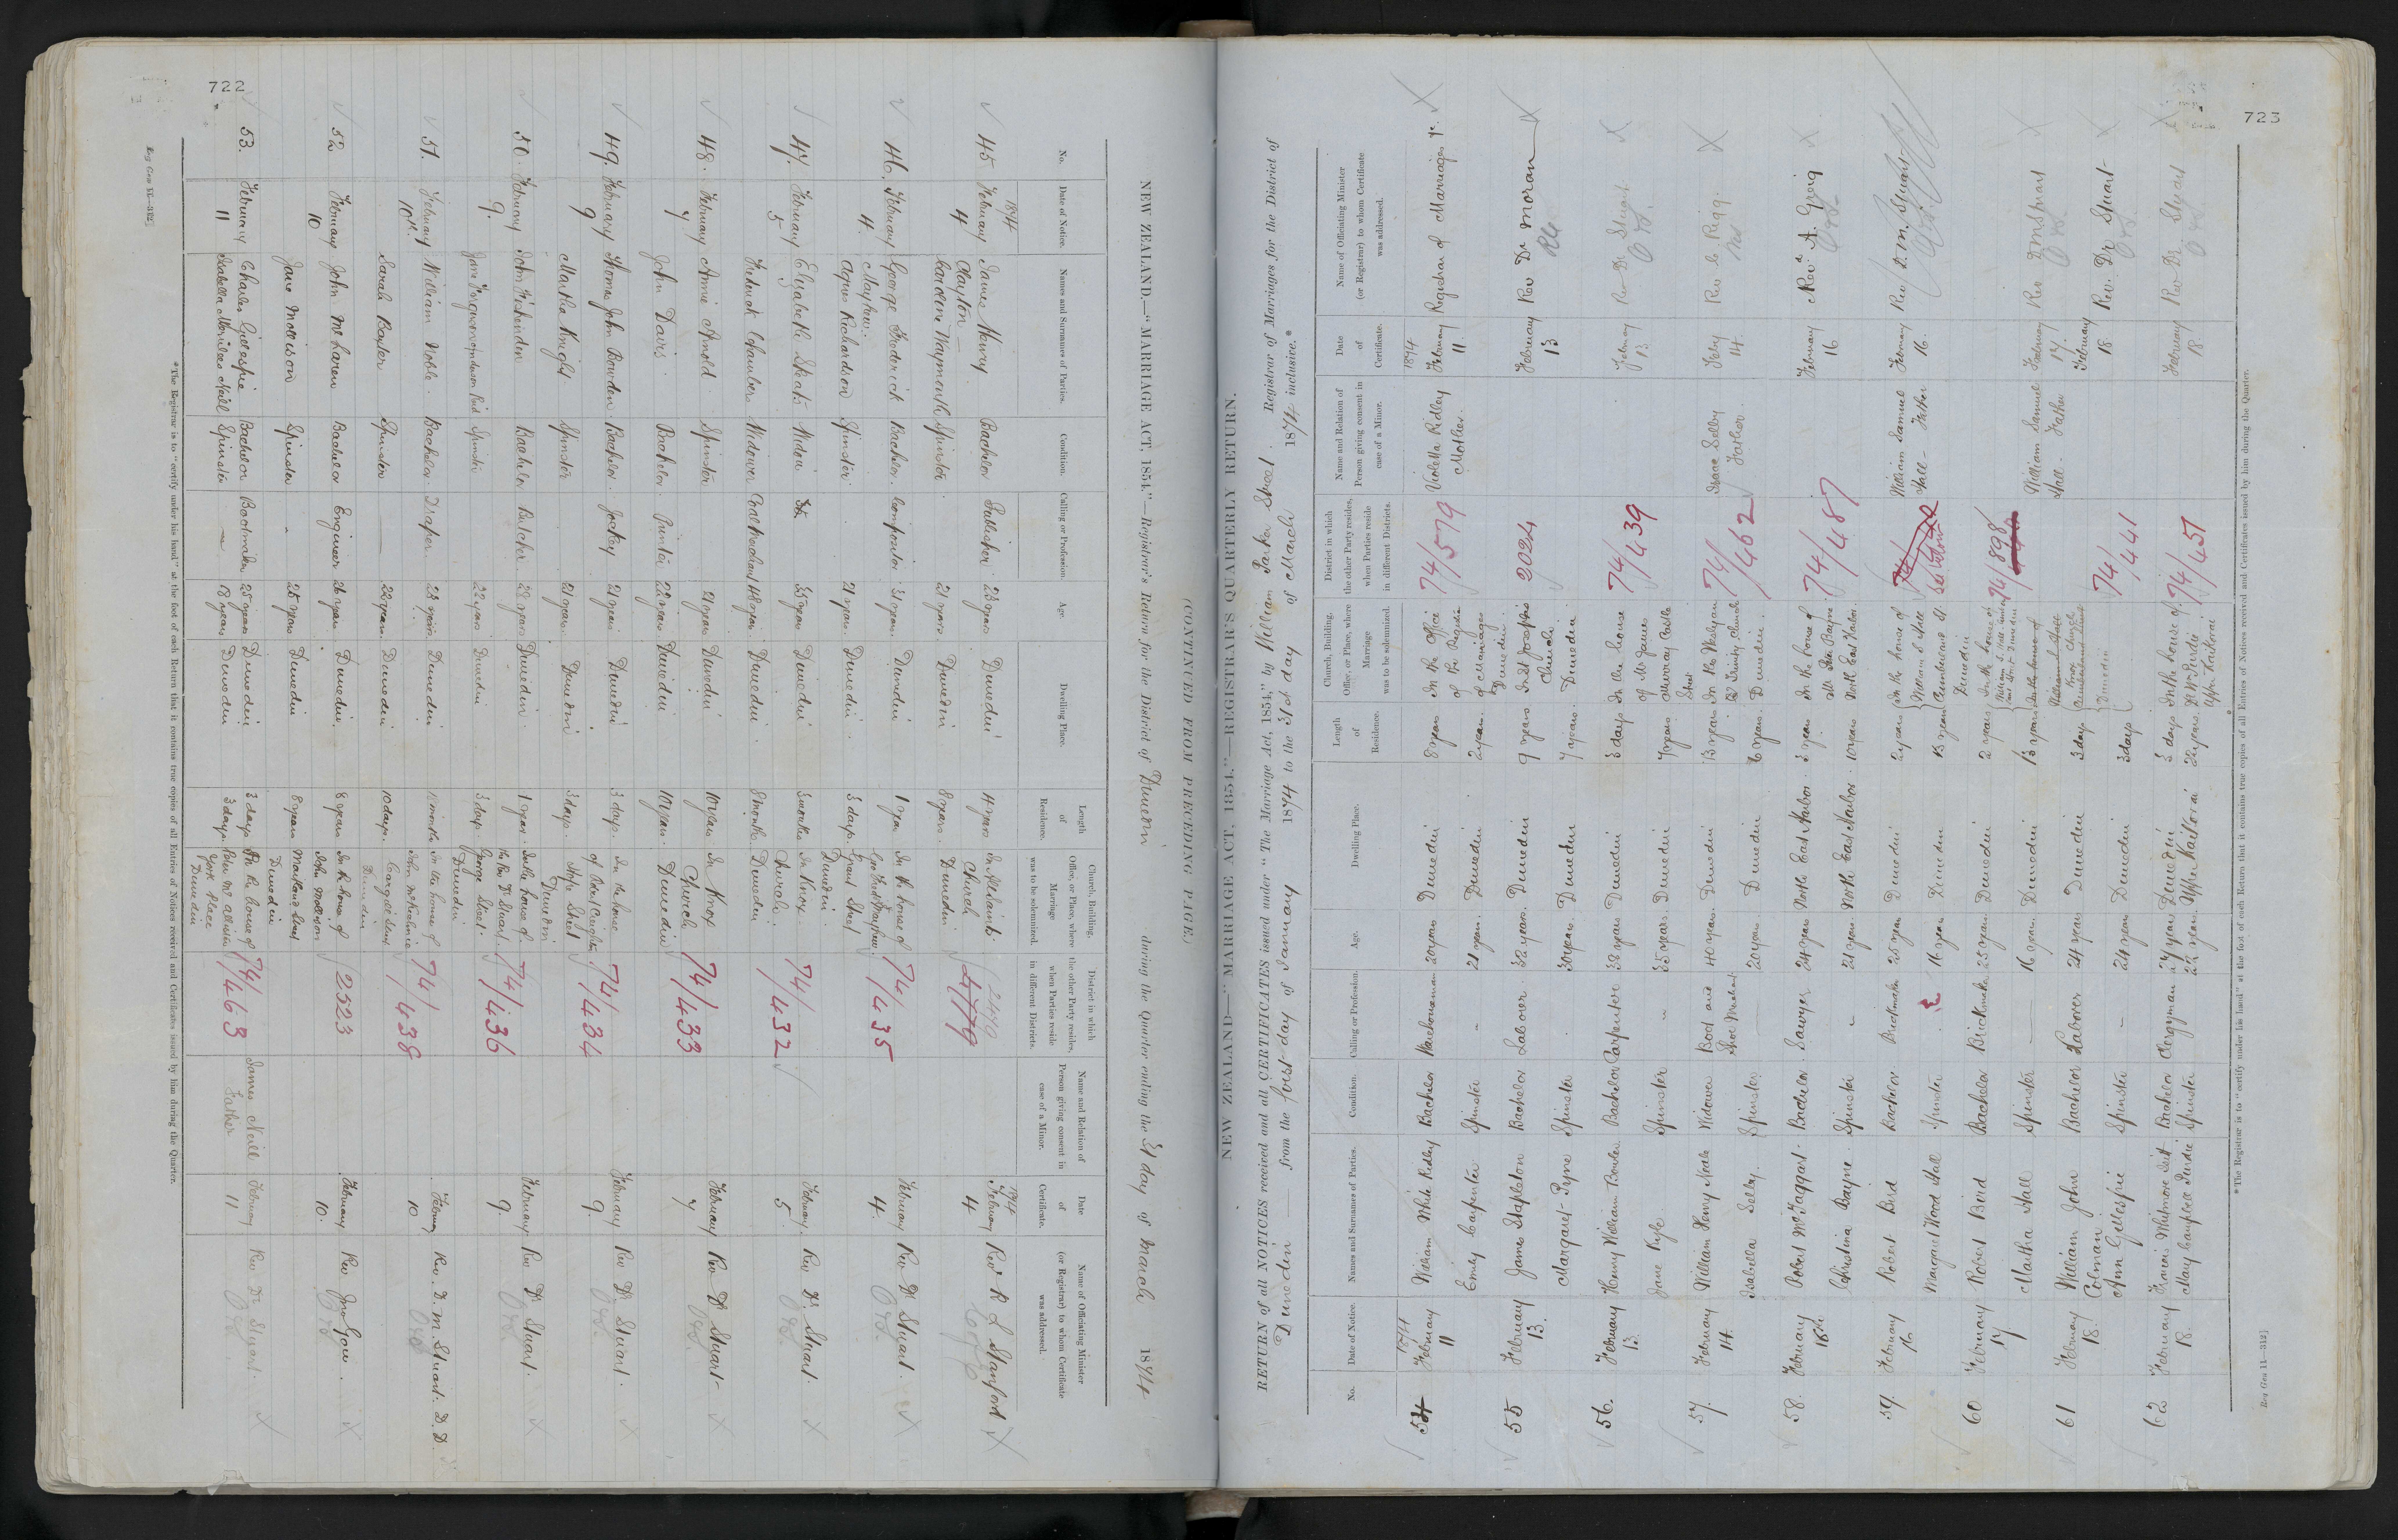 722
NEW ZEALAND.—"MARRIAGE ACT, 1854."—Registrar's Return for the District of Dunedin during the Quarter ending the 31 day of March 1874
(CONTINUED FROM PRECEDING PAGE.)
No. Date of Notice. Names and Surnames of Parties. Condition. Calling or Profession. Age. Dwelling Place. Length of Residence. Church, Building, Office, or Place, where Marriage was to be solemnized. District in which the other Party resides, when Parties reside in different Districts. Name and Relation of Person giving consent in case of a Minor. Date of Certificate. Name of Officiating Minister (or Registrar) to whom Certificate was addressed.
1874 1874
45 February 4 James Henry Clayton Bachelor Publisher 23 years Dunedin 4 years Church Dunedin 2479 February 4 Rev R L Stanford
Waymouth Spinster 21 years Dunedin 8 years
46. February 4. George Frederick Bachelor Compositor 31 years Dunedin 1 year In the house of Grant Street Dunedin 74/435 February 4. Rev Dr Stuart.
Agnes Richardson Spinster 21 years Dunedin 3 days
47. February 5 Elizabeth Skats Widow 35 years Dunedin 3 months In Knox Church Dunedin 74/432 February 5 Rev Dr Stuart.
Frederick Chambers Widower Coal Merchant 48 years Dunedin 8 months
48. February 7 Annie Arnold Spinster 21 years Dunedin 10 years In Knox Church Dunedin 74/433 February 7 Rev Dr Stuart
John Davis Bachelor Printer 22 years Dunedin 10 years
49. February 9 Thomas John Bowden Bachelor Jockey 21 years Dunedin 3 days In the house of Hope Street Dunedin 74/434 February 9. Rev Dr Stuart.
Martha Knight Spinster 21 years Dunedin 3 days
50. February 9. John Bachelor Butcher 28 years Dunedin 1 year In the house of the Rev Dr Stuart George Street Dunedin 74/436 February 9. Rev Dr Stuart.
Jane Reid Spinster 22 years Dunedin 3 days
51. February 10th William Noble Bachelor Draper 23 years Dunedin 12 months In the house of Cargill Street Dunedin 74/438 February 10 Rev. D. M. Stuart. D.D.
Sarah Baxter Spinster 22 years Dunedin 10 days
52 February 10 John McLaren Bachelor Engineer 26 years Dunedin 8 years In the house of John Mollison Maitland Street Dunedin 2523 February 10. Rev Jno Gow.
Jane Mollison Spinster 25 years Dunedin 8 years
53. February 11 Charles Gillespie Bachelor Bootmaker 25 years Dunedin 3 days At the house of York Place Dunedin 74/463 James Neill Father February 11 Rev Dr Stuart.
Isabella Neill Spinster 18 years Dunedin 3 days
*The Registrar is to "certify under his hand" at the foot of each Return that it contains true copies of all Entries of Notices received and Certificates issued by him during the Quarter.
Reg Gen 11—312]
723
NEW ZEALAND—"MARRIAGE ACT, 1854."—REGISTRAR'S QUARTERLY RETURN.
RETURN of all NOTICES received and all CERTIFICATES issued under "The Marriage Act, 1854," by William Parker Street. Registrar of Marriages for the District of
Dunedin from the first day of January 1874 to the 31st day of March 1874 inclusive.*
No. Date of Notice. Names and Surnames of Parties. Condition. Calling or Profession. Age. Dwelling Place. Length of Residence. Church, Building, Office, or Place, where Marriage was to be solemnized. District in which the other Party resides, when Parties reside in different Districts. Name and Relation of Person giving consent in case of a Minor. Date of Certificate. Name of Officiating Minister (or Registrar) to whom Certificate was addressed.
1874 1874
54 February 11 William White Ridley Bachelor Warehouseman 20 years Dunedin 8 years In the Office of the Registrar of Marriages Dunedin 74/579 Violetta Ridley Mother. February 11. Registrar of Marriages
Emily Carpenter Spinster - 21 years Dunedin 2 years
55 February 13. James Stapleton Bachelor Laborer 32 years Dunedin 9 years In St Josephs Church Dunedin 2024 February 13 Rev Dr Moran
Margaret Pyne Spinster 30 years Dunedin 7 years
56. February 13. Henry William Bowles Bachelor Carpenter 38 years Dunedin 3 days In the house of Mr James Murray Castle Street 74/439 February 13. Rev Dr Stuart
Jane Kyle Spinster 35 years Dunedin 7 years
57. February 14. William Henry Neale Widower Boot and Shoe Maker 40 years Dunedin 13 years In the Wesleyan Trinity Church Dunedin 74/462 Isaac Selby Father Feby 14. Rev. Le Rigg.
Isabella Selby Spinster 20 years Dunedin 6 years
58. February 16th Robert McTaggart Bachelor Sawyer 24 years North East Harbor 3 years In the house of Mr Bayne North East Harbor 74/487 February 16 Revd A. Greig
Christina Bayne Spinster 21 years North East Harbor 10 years
59. February 16 Robert Bird Bachelor Brickmaker 25 years Dunedin 2 years In the house of William S Hall Cumberland St Dunedin See below William Samuel Hall - Father February 16. Rev D. M. Stuart
Margaret Wood Hall Spinster 16 years Dunedin 13 years
60 February 17 Robert Bird Bachelor Brickmaker 25 years Dunedin 2 years In the house of 74/898 William Samuel Hall - Father February 17. Rev D M Stuart
Martha Hall Spinster 16 years Dunedin 13 years
61 February 18. William John Colman Bachelor Laborer 24 years Dunedin 3 days Knox Church Dunedin 74/441 February 18 Rev. Dr Stuart
Ann Gillespie Spinster 24 years Dunedin 3 days
62 February 18. Francis Whitmore Isitt Bachelor Clergyman 27 years Dunedin 3 days In the house of Mr Purdie Upper Kaikorai 74/451 February 18. Rev Dr. Stuart
Mary Campbell Purdie Spinster 22 years Upper Kaikorai 22 years
*The Registrar is to "certify under his hand" at the foot of each Return that it contains true copies of all Entries of Notices received and Certificates issued by him during the Quarter.
Reg Gen 11—312]